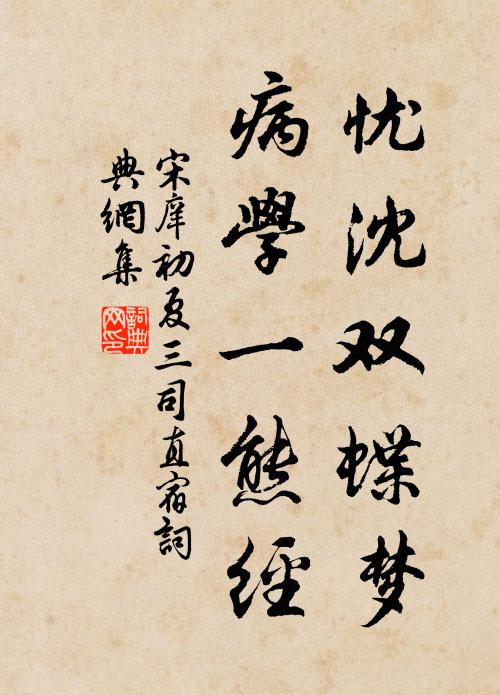 忧沈双蝶梦
病学一熊经
宋庠初夏三司直宿词
典網集
詞典网印